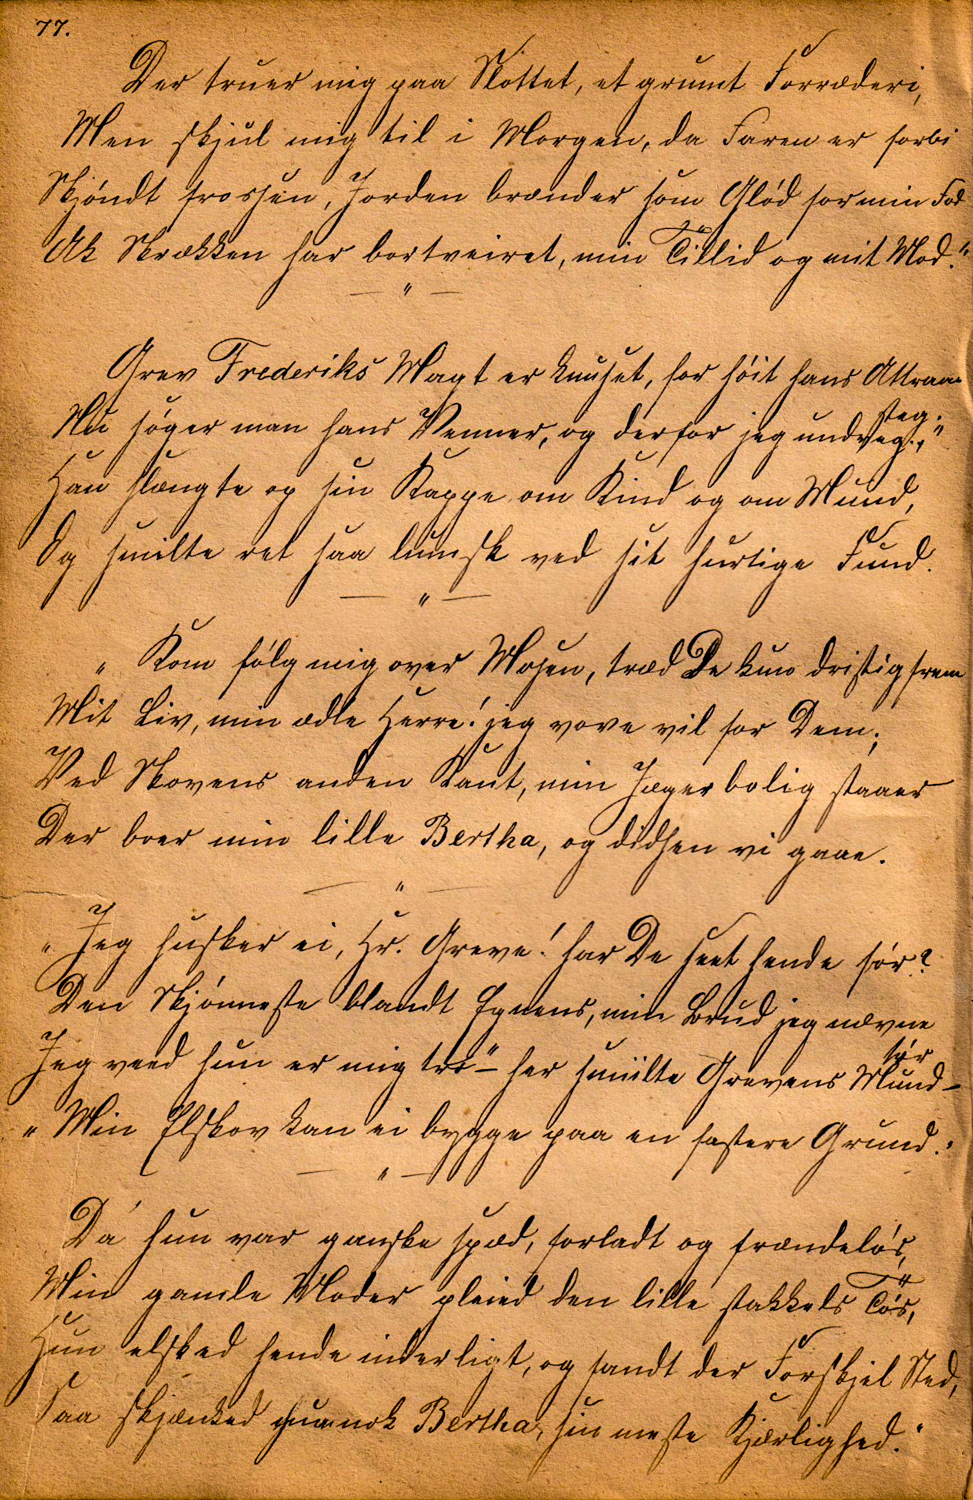 77.
Der truer mig paa Slottet, et grumt Forræderi,
Men skjul mig til i Morgen, da Faren er forbi
Skjøndt frossen, Jorden brænder som Glød for min Fod
Ak Skrækken har bortveiret, min Tillid og mit Mod."
— " —
Grev Frederiks Magt er knuset, for høit hans Attraa
steg.
Nu søger man hans Venner, og derfor jeg undveg.,"
Han slængte op sin Kappe om Kind og om Mund,
Og smilte ret saa lumsk ved sit hurtige Fund.
— " —
" Kom følg mig over Mosen, træd De kun dristig frem
Mit Liv, min ædle Herre! jeg vove vil for Dem;
Ved Skovens anden Kant, min Jægerbolig staaer
Der boer min lille Bertha, og didhen vi gaae.
— " —
" Jeg husker ei, Hr. Greve! har De seet hende før?
Den Skjønneste blandt Egnens, min Brud jeg nævne
tør
Jeg veed hun er mig tro" – her smiilte Grevens Mund –
" Min Elskov kan ei bygge paa en fastere Grund."
— " —
Da hun var ganske spæd, forladt og frændeløs,
Min gamle Moder pleied den lille stakkels Tøs,
Hun elsked hende inderligt, og fandt der Forskjel Sted,
Saa skjænked hun nok Bertha, sin meste Kjærlighed."